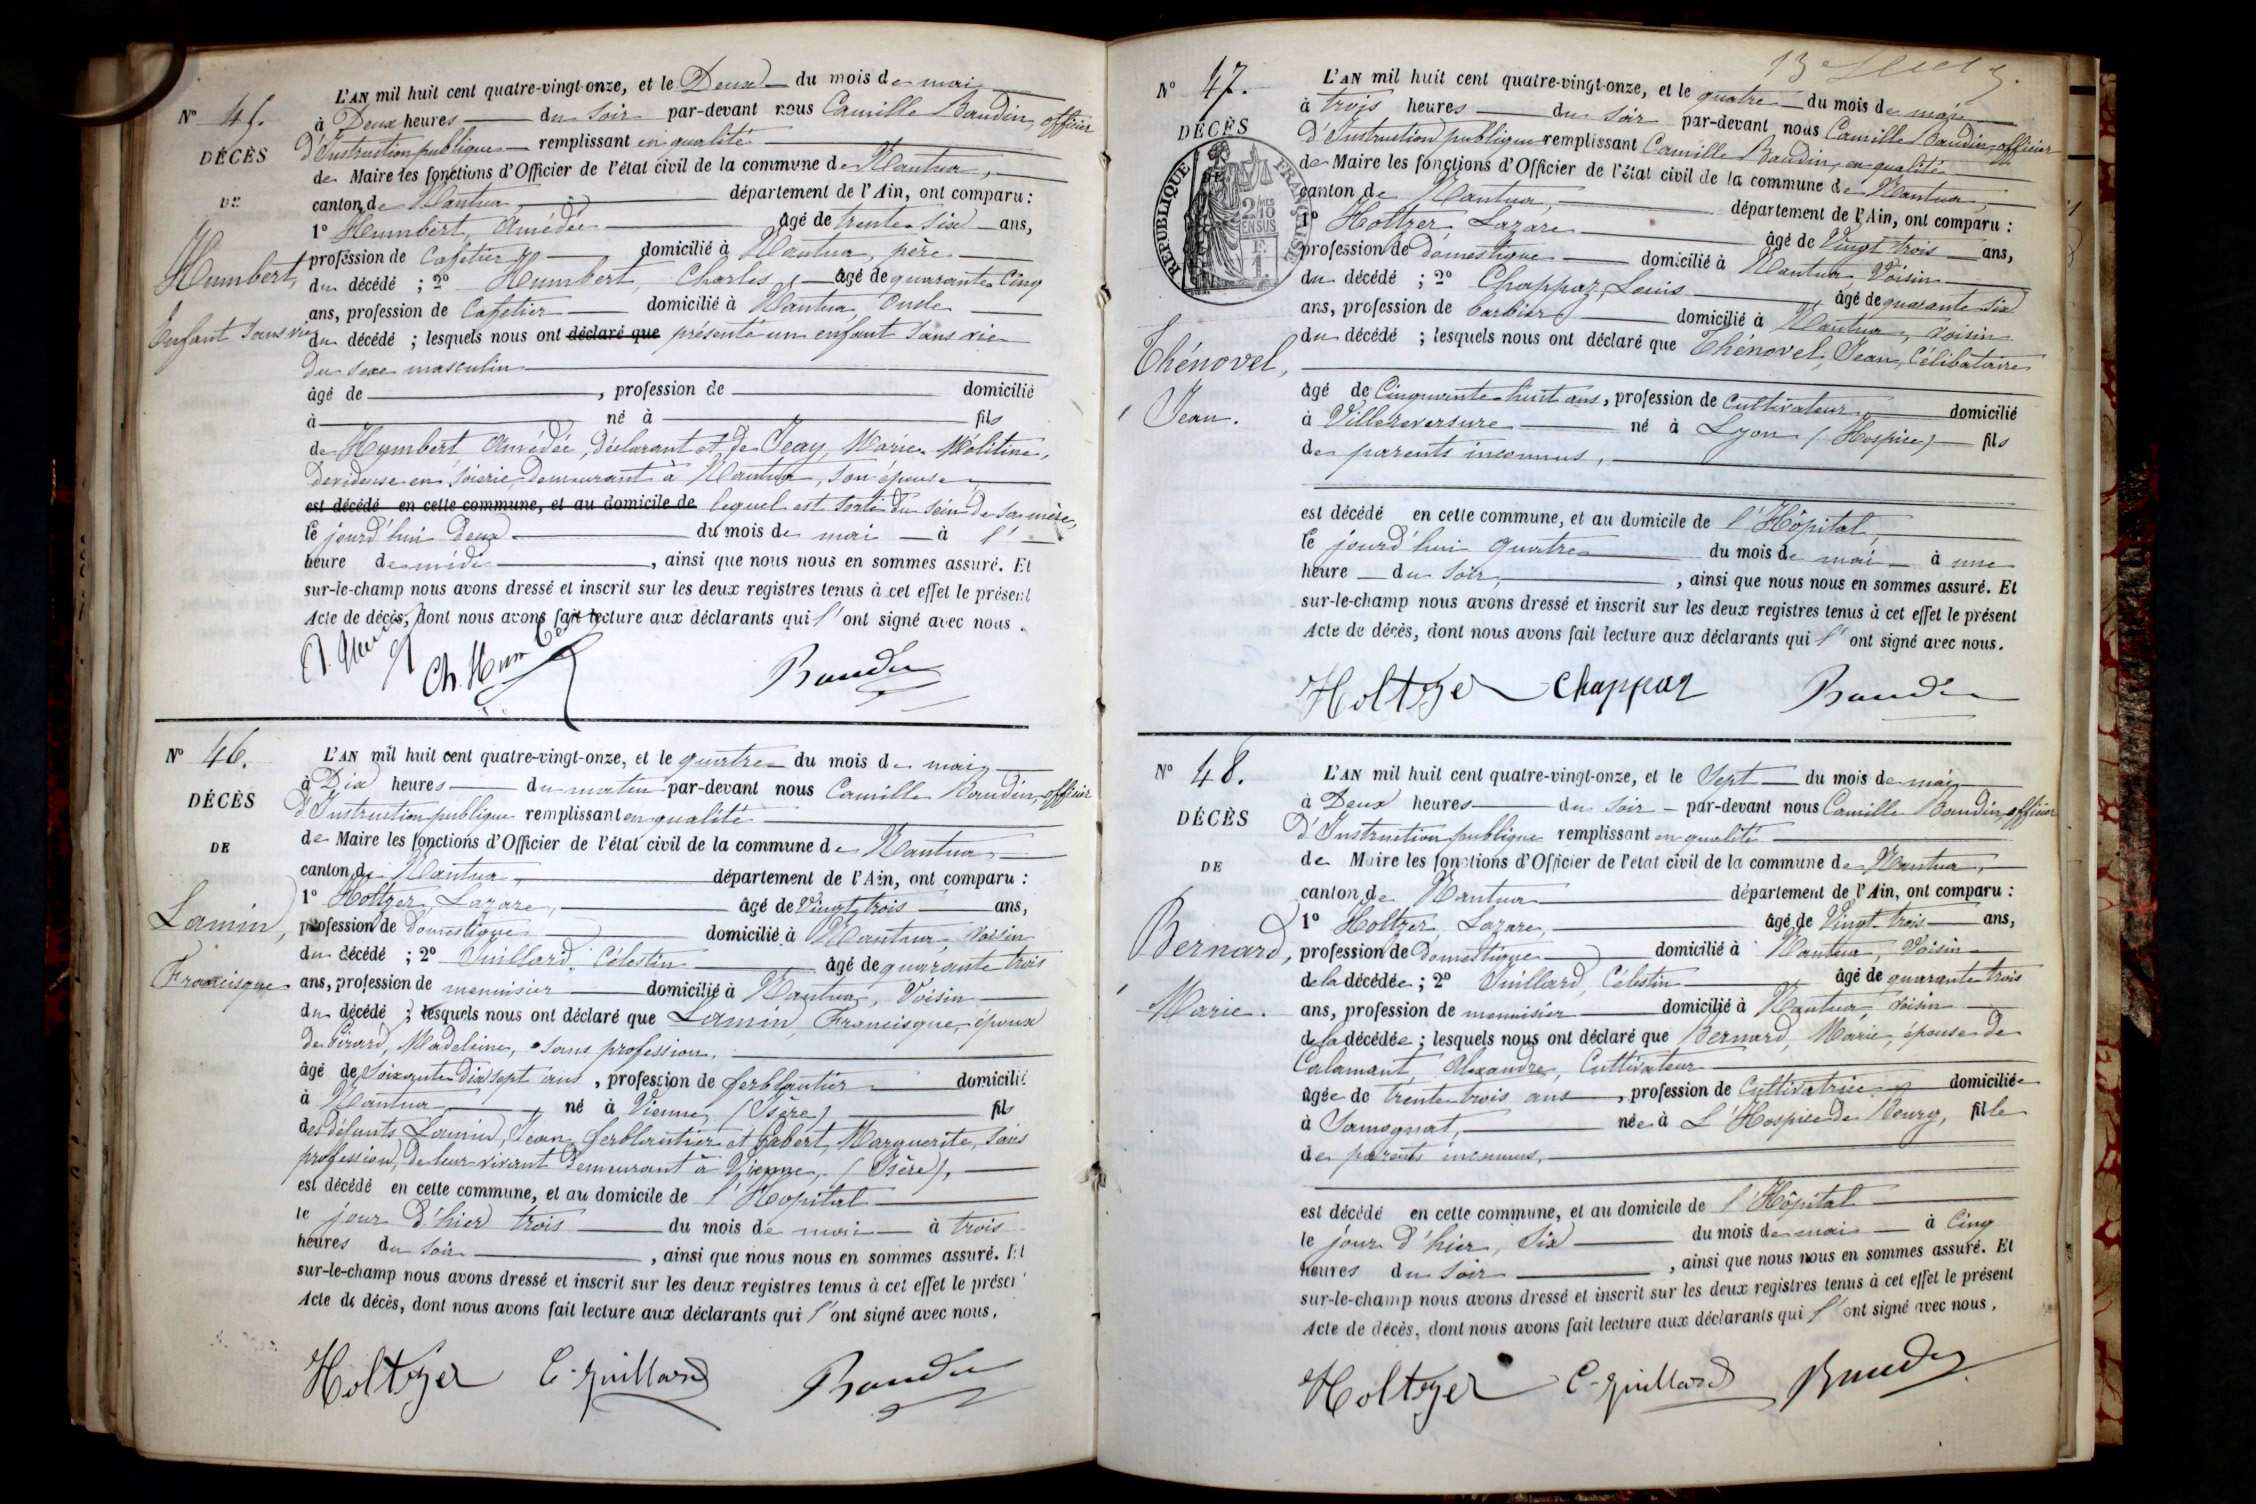 N° 45.
DÉCÈS
DE
Humbert,
Enfant sans vie
L'AN mil huit cent quatre-vingt-onze, et le Deux du mois de mai
à Deux heures du soir par-devant nous Camille Baudin, officier
d'Instruction publique remplissant en qualité
de Maire les fonctions d'Officier de l'état civil de la commune de Nantua,
canton de Nantua, département de l'Ain, ont comparu :
1° Humbert, Amédée âgé de trente six ans,
profession de Cafetier domicilié à Nantua, père
du décédé ; 2° Humbert, Charles, âgé de quarante cinq
ans, profession de Cafetier domicilié à Nantua, Oncle
du décédé ; lesquels nous ont déclaré que présenté un enfant sans vie
du sexe masculin
âgé de , profession de domicilié
à né à fils
de Humbert Amédée, déclarant et de Jeay, Marie Mélitine,
Devideuse en soierie, demeurant à Nantua, son épouse,
est décédé en cette commune, et au domicile de lequel est sorti du sein de sa mère,
le jourd'hui Deux du mois de mai à l'
heure de midi , ainsi que nous nous en sommes assuré. Et
sur-le-champ nous avons dressé et inscrit sur les deux registres tenus à cet effet le présent
Acte de décès, dont nous avons fait lecture aux déclarants qui l'ont signé avec nous.
Ch. Humbert Baudin
N° 46.
DÉCÈS
DE
Lamin,
Francisque
L'AN mil huit cent quatre-vingt-onze, et le quatre du mois de mai
à Dix heures du matin par-devant nous Camille Baudin, officier
d'Instruction publique remplissant en qualité
de Maire les fonctions d'Officier de l'état civil de la commune de Nantua,
canton de Nantua, département de l'Ain, ont comparu :
1° Holtzer, Lazare, âgé de Vingt trois ans,
profession de Domestique domicilié à Nantua, voisin
du décédé ; 2° Vuillard, Célestin âgé de quarante trois
ans, profession de menuisier domicilié à Nantua, Voisin
du décédé ; lesquels nous ont déclaré que Lamin, Francisque, époux
de Girard, Madeleine, sans profession,
âgé de soixante dix sept ans , profession de ferblantier domicilié
à Nantua, né à Vienne, (Isère) fils
des défunts Lamin, Jean, ferblantier et Gabert, Marguerite, sans
profession, de leur vivant demeurant à Vienne, (Isère),
est décédé en cette commune, et au domicile de l'Hopital
le jour d'hier trois du mois de mai à trois
heures du soir , ainsi que nous nous en sommes assuré. Et
sur-le-champ nous avons dressé et inscrit sur les deux registres tenus à cet effet le présent
Acte de décès, dont nous avons fait lecture aux déclarants qui l'ont signé avec nous.
Holtzer C. Vuillard Baudin
N° 47.
DÉCÈS
RÉPUBLIQUE FRANÇAISE
2/10 EN SUS
Thénovel,
Jean.
L'AN mil huit cent quatre-vingt-onze, et le quatre du mois de mai
à trois heures du soir par-devant nous Camille Baudin, officier
d'Instruction publique remplissant Camille Baudin, en qualité
de Maire les fonctions d'Officier de l'état civil de la commune de Nantua,
canton de Nantua, département de l'Ain, ont comparu :
1° Holtzer, Lazare âgé de Vingt trois ans,
profession de domestique domicilié à Nantua, Voisin
du décédé ; 2° Chappaz, Louis âgé de quarante six
ans, profession de barbier domicilié à Nantua, voisin
du décédé ; lesquels nous ont déclaré que Thénovel, Jean, Célibataire
âgé de Cinquante huit ans, profession de Cultivateur, domicilié
à Villereversure né à Lyon (Hospice) fils
de parents inconnus,
est décédé en cette commune, et au domicile de l'Hôpital,
le jourd'hui quatre du mois de mai à une
heure du soir, , ainsi que nous nous en sommes assuré. Et
sur-le-champ nous avons dressé et inscrit sur les deux registres tenus à cet effet le présent
Acte de décès, dont nous avons fait lecture aux déclarants qui l'ont signé avec nous.
Holtzer Chappaz Baudin
N° 48.
DÉCÈS
DE
Bernard,
Marie.
L'AN mil huit cent quatre-vingt-onze, et le Sept du mois de mai
à Deux heures du soir par-devant nous Camille Baudin, officier
d'Instruction publique remplissant en qualité
de Maire les fonctions d'Officier de l'état civil de la commune de Nantua,
canton de Nantua département de l'Ain, ont comparu :
1° Holtzer, Lazare, âgé de Vingt trois ans,
profession de Domestique domicilié à Nantua, Voisin
de la décédée ; 2° Vuillard, Célestin âgé de quarante trois
ans, profession de menuisier domicilié à Nantua, voisin
de la décédée ; lesquels nous ont déclaré que Bernard, Marie, épouse de
Calamant, Alexandre, Cultivateur
âgée de trente trois ans , profession de Cultivatrice domiciliée
à Samognat, née à L'Hospice de Bourg, fille
de parents inconnus,
est décédé en cette commune, et au domicile de l'Hôpital
le jour d'hier, Six du mois de mai à Cinq
heures du soir , ainsi que nous nous en sommes assuré. Et
sur-le-champ nous avons dressé et inscrit sur les deux registres tenus à cet effet le présent
Acte de décès, dont nous avons fait lecture aux déclarants qui l'ont signé avec nous.
Holtzer C. Vuillard Baudin